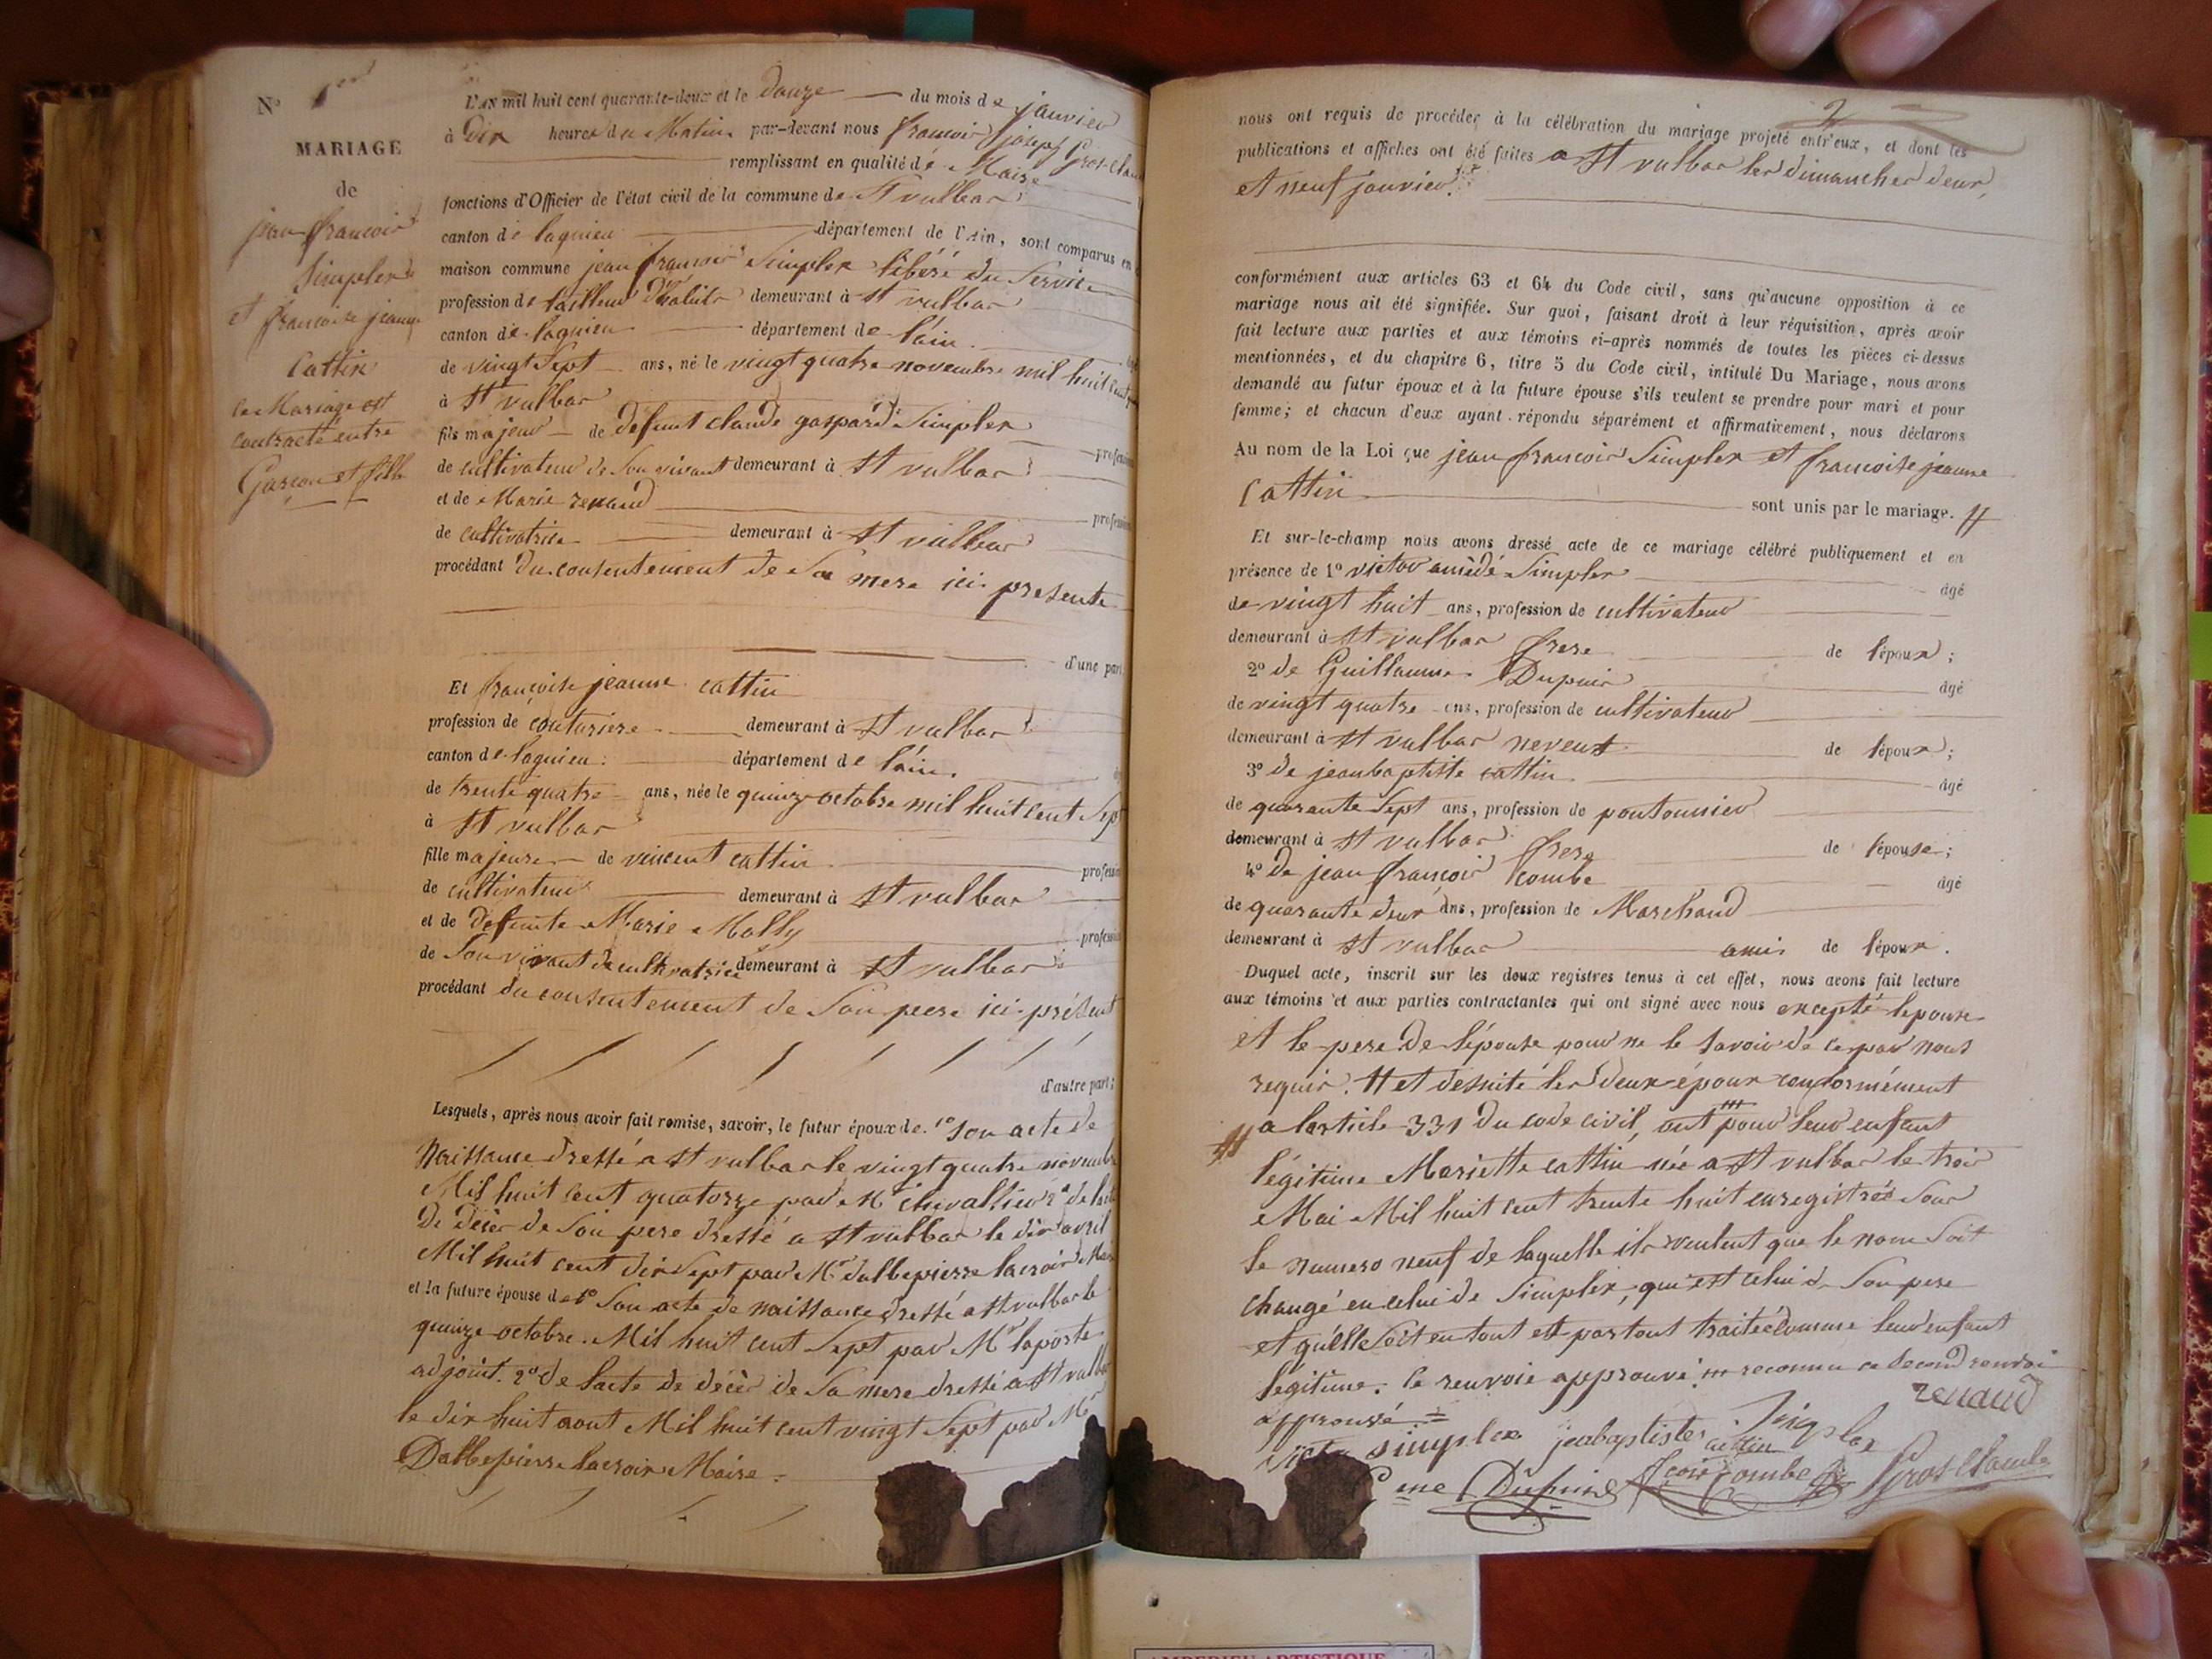 N° 1er
MARIAGE
de
jean françois
Simplex
et françoise jeanne
Cattin
le Mariage est
contracté entre
Garçon et fille
L'AN mil huit cent quarante-deux et le douze du mois de janvier
à Dix heures du Matin par-devant nous françois joseph Gros-Claude
remplissant en qualité de Maire
fonctions d'Officier de l'état civil de la commune de St vulbar
canton de lagnieu département de l'Ain, sont comparus en
maison commune jean françois Simplex libéré du Service
profession de tailleur d'habits demeurant à St vulbar
canton de lagnieu département de l'ain.
de vingt Sept ans, né le vingt quatre novembre mil huit cent
à St vulbar
fils majeur de defunt claude gaspard Simplex
profession
de cultivateur de Son vivant demeurant à St vulbar
et de Marie renaud
profession
de cultivatrice demeurant à St vulbar
procédant du consentement de Sa mere ici presente
d'une part
Et françoise jeanne cattin
profession de couturiere demeurant à St vulbar
canton de lagnieu département de l'ain.
de trente quatre ans, née le quinze octobre mil huit cent Sept
à St vulbar
fille majeure de vincent cattin
profession
de cultivateur demeurant à St vulbar
et de defunte Marie Molly
profession
de Son vivant de cultivatrice demeurant à St vulbar
procédant du consentement de Son pere ici présent
d'autre part;
Lesquels, après nous avoir fait remise, savoir, le futur époux de 1° Son acte de
Naissance dressé a St vulbar le vingt quatre novembre
Mil huit cent quatorze par Mr chevallier 2° de l'acte
De décès de Son pere dressé a St vulbar le dix avril
Mil huit cent dix Sept par Mr dallepierre lacroix Maire
et la future épouse de 1° Son acte de naissance dressé a St vulbar le
quinze octobre Mil huit cent Sept par Mr laporte
adjoint. 2° de l'acte de décès de Sa mere dressé a St vulbar
le dix huit aout Mil huit cent vingt Sept par Mr
Dallepierre lacroix Maire.
2
nous ont requis de procéder à la célébration du mariage projeté entr'eux, et dont les
publications et affiches ont été faites a St vulbar les dimanches deux,
et neuf janvier.
conformément aux articles 63 et 64 du Code civil, sans qu'aucune opposition à ce
mariage nous ait été signifiée. Sur quoi, faisant droit à leur réquisition, après avoir
fait lecture aux parties et aux témoins ci-après nommés de toutes les pièces ci-dessus
mentionnées, et du chapitre 6, titre 5 du Code civil, intitulé Du Mariage, nous avons
demandé au futur époux et à la future épouse s'ils veulent se prendre pour mari et pour
femme; et chacun d'eux ayant répondu séparément et affirmativement, nous déclarons
Au nom de la Loi que jean françois Simplex et françoise jeanne
Cattin
sont unis par le mariage. #
Et sur-le-champ nous avons dressé acte de ce mariage célébré publiquement et en
présence de 1° victor amédé Simplex
âgé
de vingt huit ans, profession de cultivateur
demeurant à St vulbar frere de l'époux;
2° de Guillaume Dupuis
âgé
de vingt quatre ans, profession de cultivateur
demeurant à St vulbar neveux de l'époux;
3° de jeanbaptiste cattin
âgé
de quarante Sept ans, profession de pontonnier
demeurant à St vulbar frere de l'épouse;
4° De jean françois combe
âgé
de quarante deux ans, profession de Marchand
demeurant à St vulbar ami de l'époux.
Duquel acte, inscrit sur les doux registres tenus à cet effet, nous avons fait lecture
aux témoins et aux parties contractantes qui ont signé avec nous excepté lepouse
et le pere de l'épouse pour ne le savoir de ce par nous
requis. # et desuite les deux époux conformément
a larticle 331 du code civil, ont pour leur enfant
légitime Mariette cattin née a St vulbar le trois
Mai Mil huit cent trente huit enregistrée Sous
le numero neuf de laquelle ils veulent que le nom Soit
changé en celui de Simplex, qui est celui de Son pere
et qu'elle Soit en tout et partout traitée comme leur enfant
légitime. le renvoie approuvé. reconnu ce second renvoi
approuvé
renaud
Simplex
victor simplex jeanbaptiste cattin
Dupuis fcois Combe Gros-Claude
AMBERIEU ARTISTIQUE